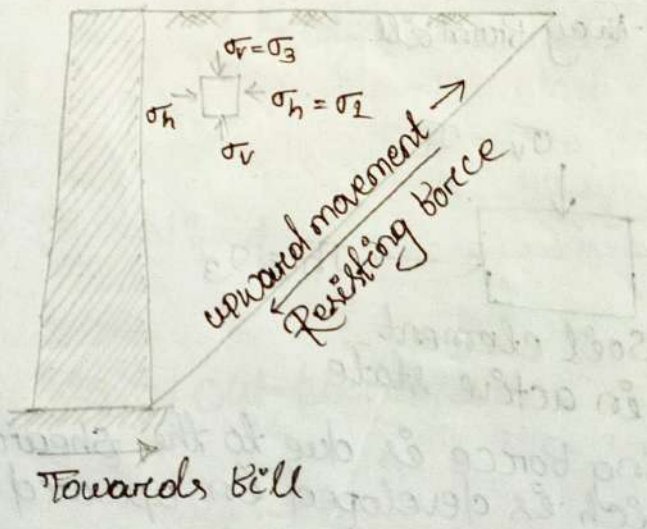 σv = σ3
σh
σh = σ1
σv
upward movement
Resisting Force
Towards Fill